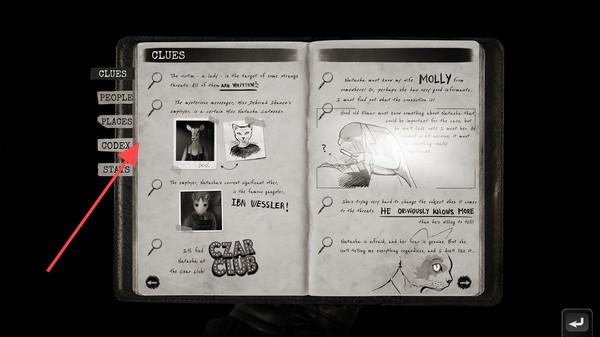 CLUES
PEOPLE
PLACES
CODEX
STATS
CLUES
The victim - a lady - is the target of some strange
threats. All of them are written!
The mysterious messenger, Miss Deborah
employer, is a certain Miss Natasha
The employer, Natasha's current significant other,
is the famous gangster,
IBN WESSLER!
I'll find
Natasha at
the Czar Club!
CZAR
CLUB
Natasha must know my wife MOLLY from
somewhere! Or, perhaps she has very good informants.
I must find out what the connection is!
Good old Elmer must know something about Natasha that
could be important for the case, but
he don't talk until I meet her.
?
She's trying very hard to change the subject when it comes
to the threats. HE OBVIOUSLY KNOWS MORE
than he's willing to tell!
Natasha is afraid, and her fear is genuine. But she
isn't telling me everything regardless, and I don't like it.